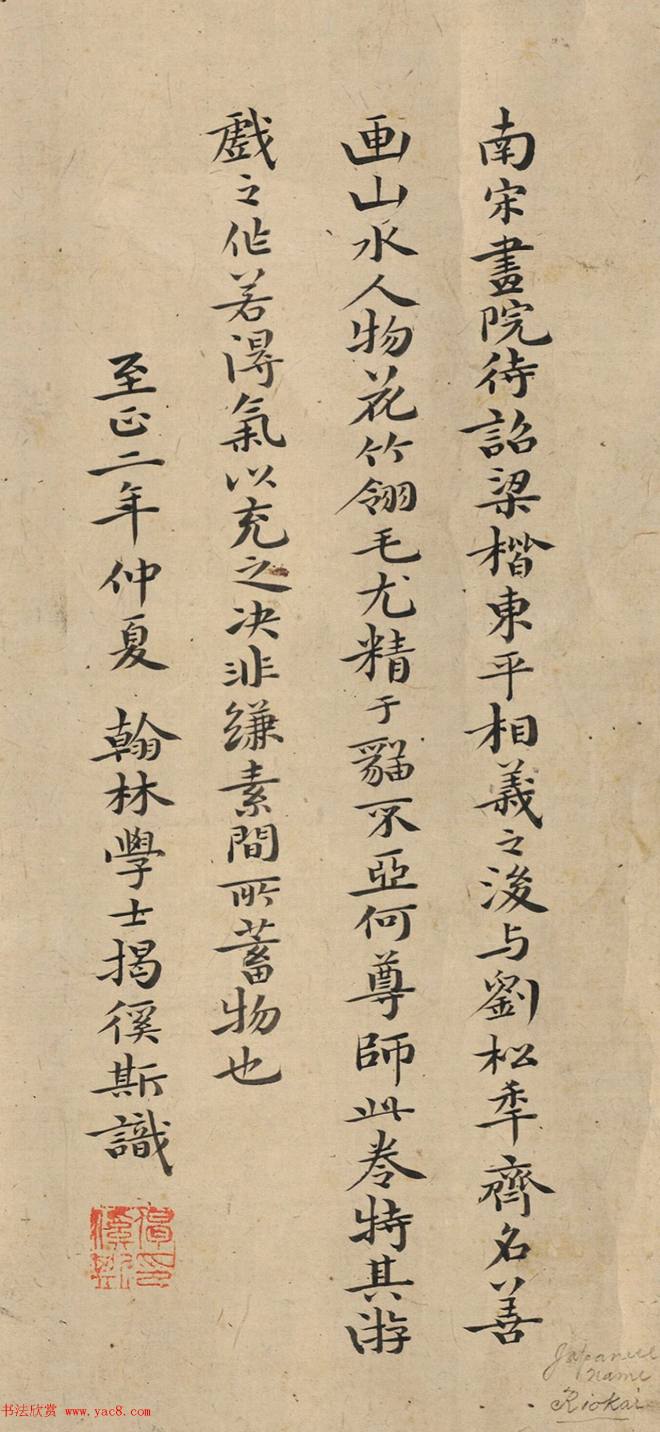 南宋畫院待詔梁楷東平相義之後与劉松年齊名善
画山水人物花竹翎毛尤精于貓不亞何尊師此卷特其游
戲之作若淂氣以充之决非縑素間所蓄物也
至正二年仲夏 翰林學士揭徯斯識
Japanese
name
Riokai
书法欣赏 www.yac8.com